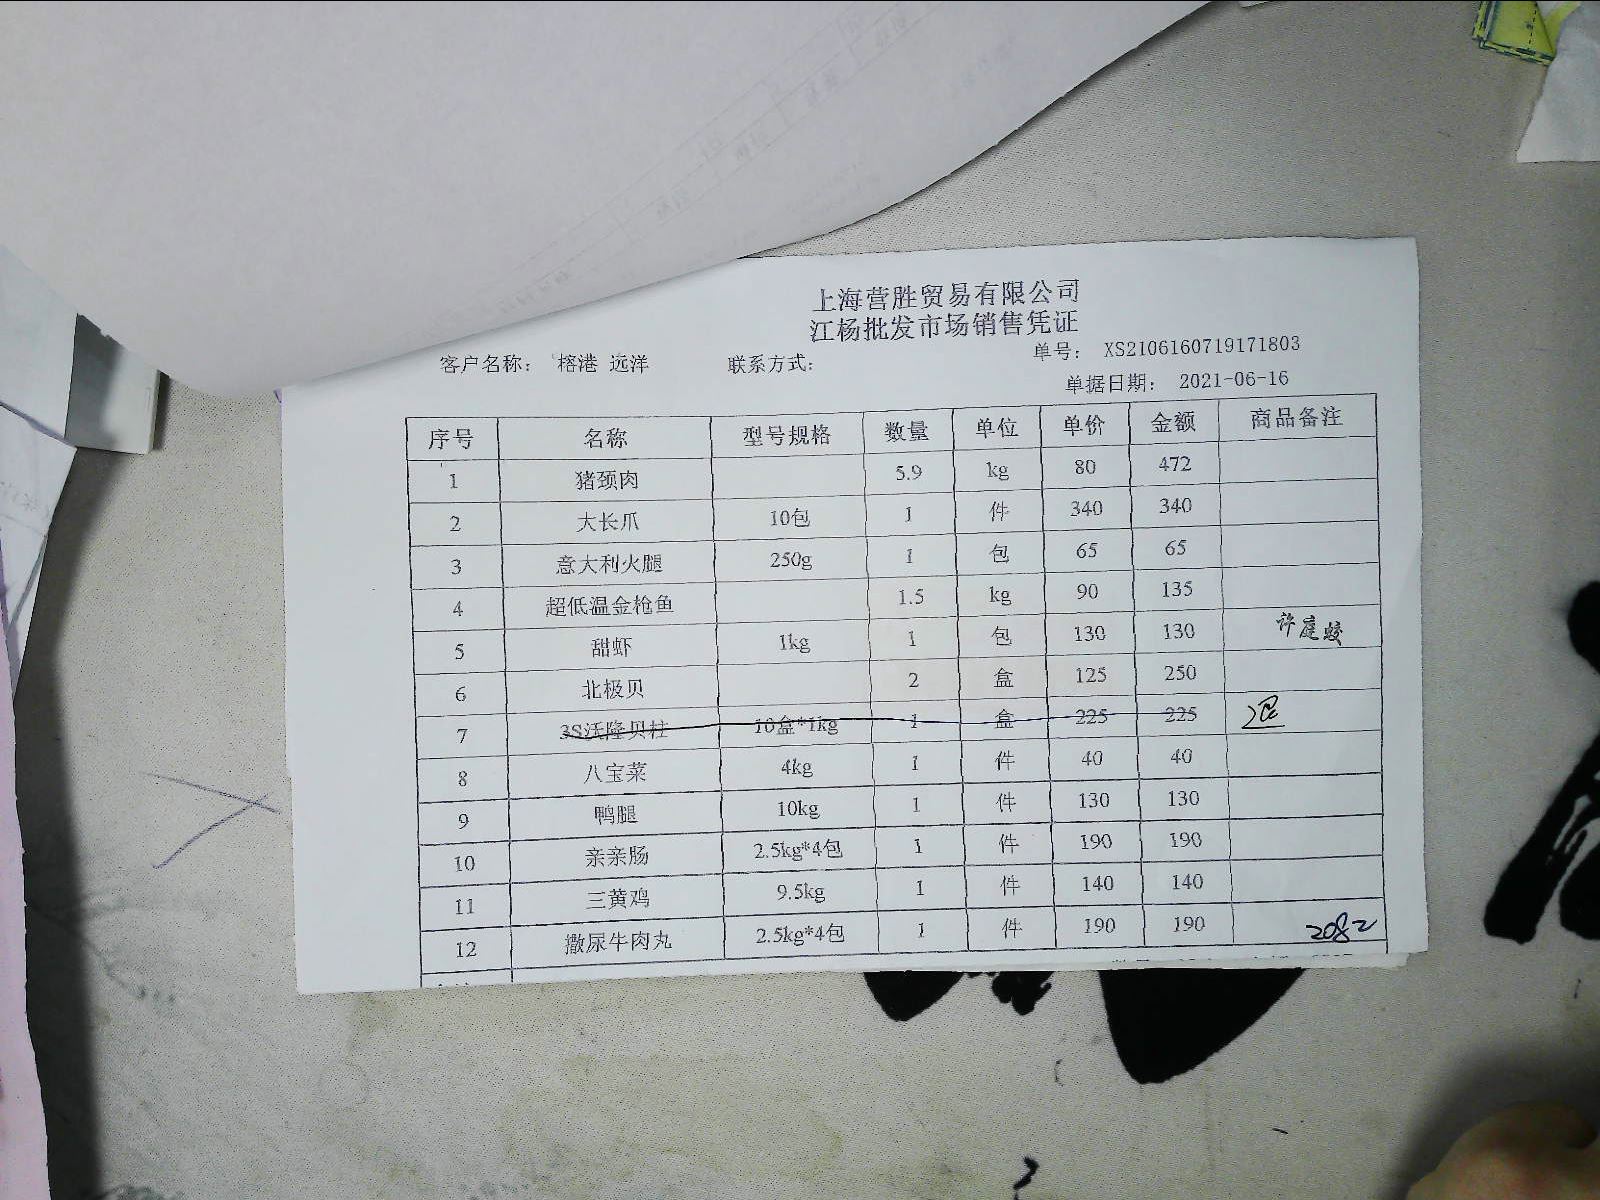 上海营胜贸易有限公司
江杨批发市场销售凭证
客户名称： 榕港 远洋 联系方式： 单号： XS2106160719171803
单据日期： 2021-06-16
序号 名称 型号规格 数量 单位 单价 金额 商品备注
1 猪颈肉 5.9 kg 80 472
2 大长爪 10包 1 件 340 340
3 意大利火腿 250g 1 包 65 65
4 超低温金枪鱼 1.5 kg 90 135
5 甜虾 1kg 1 包 130 130 许庭蛟
6 北极贝 2 盒 125 250
7 3S沃隆贝柱 10盒*1kg 1 盒 225 225 退
8 八宝菜 4kg 1 件 40 40
9 鸭腿 10kg 1 件 130 130
10 亲亲肠 2.5kg*4包 1 件 190 190
11 三黄鸡 9.5kg 1 件 140 140
12 撒尿牛肉丸 2.5kg*4包 1 件 190 190 2082